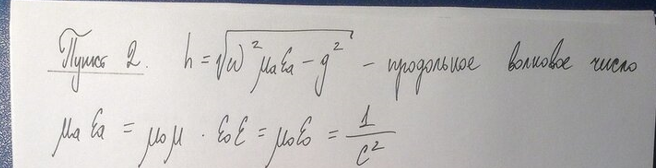 Пункт 2. h = √(ω² μa εa − g²) − продольное волновое число
μa εa = μ0 μ · ε0 ε = μ0 ε0 = 1/c²